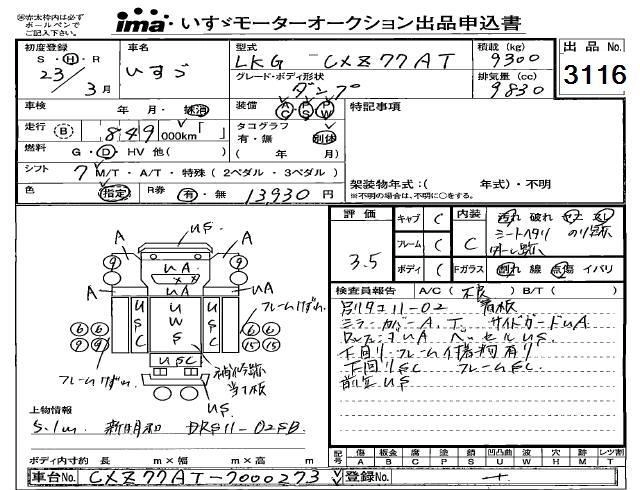 ※赤太枠内は必ず
ボールペンで
ご記入下さい。
ima いすゞモーターオークション出品申込書
初度登録 S・H・R 23 / 3月
車名 いすゞ
型式 LKG - CXZ77AT
グレード・ボディ形状 ダンプ
積載 (kg) 9300
排気量 (cc) 9830
出品No. 3116
車検 年 月・抹消
装備 A/C・P/S・P/W
特記事項
走行 B 849,000km「 」
タコグラフ 有・無 別体
( 年 月)
燃料 G・D・HV 他( )
シフト 7 M/T・A/T・特殊 (2ペダル・3ペダル)
架装物年式:( 年式)・不明
※不明の場合は、不明に○をする。
色 指定 R券 有・無 13,930円
評価 3.5
キャブ C
フレーム C
ボディ C
内装 C
Fガラス
汚れ 破れ コゲ スレ
シートヘタリ のり跡
外し跡
割れ 線 点傷 イバリ
検査員報告 A/C( 不良 )B/T( )
別タコ11-02 看板
ミラーカバーA、T。 サイドガードUA
ベッセルUS。
下回り、フレーム 有り
下回りSC フレームSC
前立US
US
A A
UA
A UA
USC UWS USC
USC
フレームけずれ
フレームけずれ
補修跡
当て板
US
上物情報
5.1m 新明和 DR511-02SB
ボディ内寸約 長 m×幅 m×高 m
記号 傷A 板金B 腐C 塗P 錆S 凹凸曲U 波W 穴H 欠M レンツ割T
車台No. CXZ77AT-7000273
登録No.